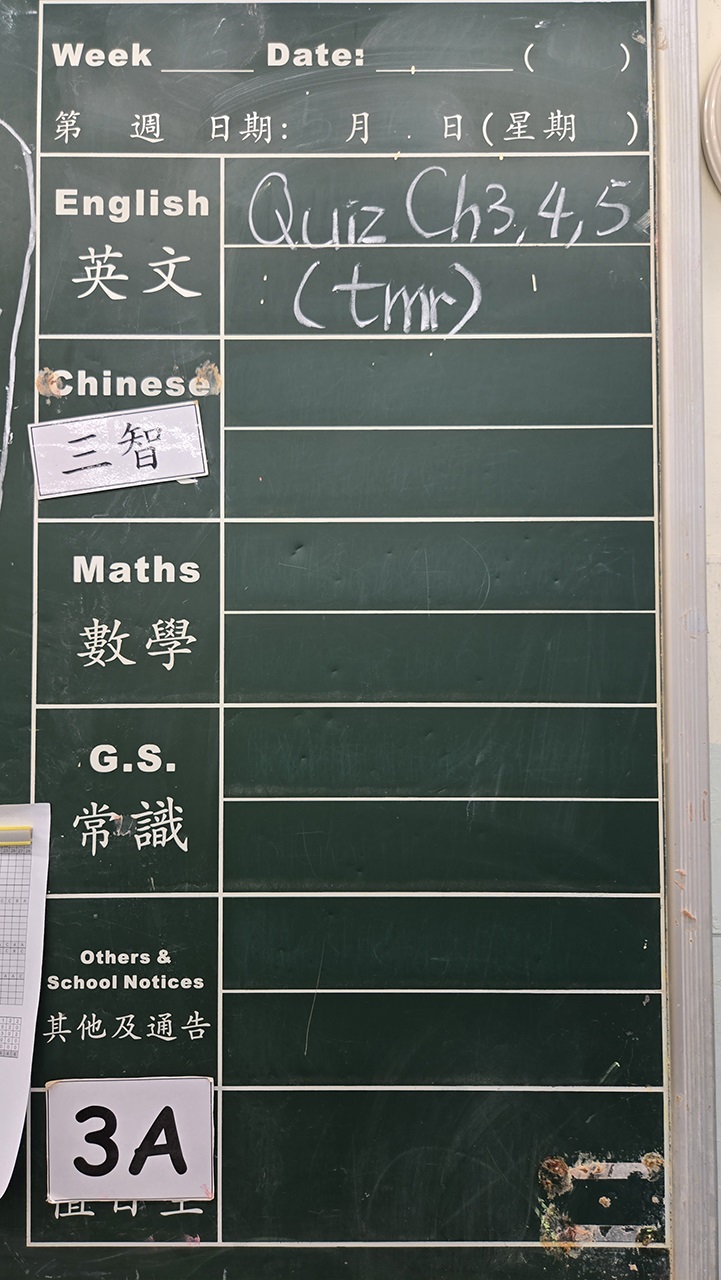 Week ____ Date: ______ ( )
第 週 日期: 月 日(星期 )
English
Quiz Ch3,4,5
英文
(tmr)
Chinese
三智
Maths
數學
G.S.
常識
Others &
School Notices
其他及通告
3A